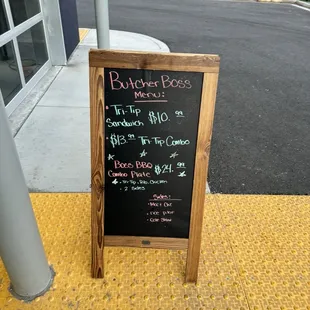 Butcher Boss
Menu:
• Tri-Tip
Sandwich $10.99
$13.99 Tri-Tip Combo
Boss BBQ $24.99
Combo Plate
• Tri-Tip, Rib, Chicken
• 2 Sides
Sides: